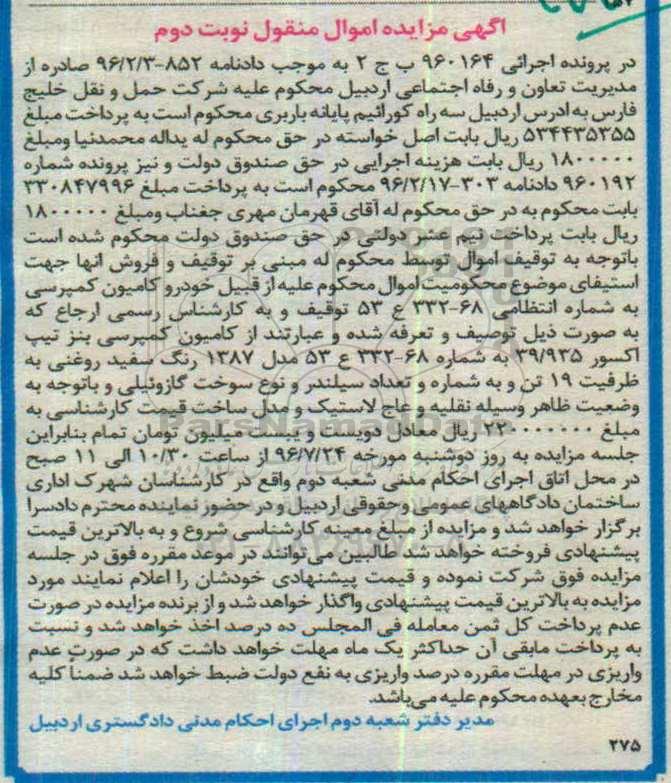 اگهی مزایده اموال منقول نوبت دوم
در پرونده اجرائی ۹۶۰۱۶۴ ب ج ۲ به موجب دادنامه ۸۵۲-۹۶/۲/۳ صادره از
مدیریت تعاون و رفاه اجتماعی اردبیل محکوم علیه شرکت حمل و نقل خلیج
فارس به ادرس اردبیل سه راه کورائیم پایانه باربری محکوم است به پرداخت مبلغ
۵۳۴۴۳۵۳۵۵ ریال بابت اصل خواسته در حق محکوم له یداله محمدنیا ومبلغ
۱۸۰۰۰۰۰ ریال بابت هزینه اجرایی در حق صندوق دولت و نیز پرونده شماره
۹۶۰۱۹۲ دادنامه ۳۰۳-۹۶/۲/۱۷ محکوم است به پرداخت مبلغ ۳۳۰۸۴۷۹۹۶
بابت محکوم به در حق محکوم له آقای قهرمان مهری جغناب ومبلغ ۱۸۰۰۰۰۰
ریال بابت پرداخت نیم عشر دولتی در حق صندوق دولت محکوم شده است
باتوجه به توقیف اموال توسط محکوم له مبنی بر توقیف و فروش انها جهت
استیفای موضوع محکومیت اموال محکوم علیه از قبیل خودرو کامیون کمپرسی
به شماره انتظامی ۶۸-۳۳۲ ع ۵۳ توقیف و به کارشناس رسمی ارجاع که
به صورت ذیل توصیف و تعرفه شده و عبارتند از کامیون کمپرسی بنز تیپ
اکسور ۳۹/۹۳۵ به شماره ۶۸-۳۳۲ ع ۵۳ مدل ۱۳۸۷ رنگ سفید روغنی به
ظرفیت ۱۹ تن و به شماره و تعداد سیلندر و نوع سوخت گازوئیلی و باتوجه به
وضعیت ظاهر وسیله نقلیه و عاج لاستیک و مدل ساخت قیمت کارشناسی به
مبلغ ۲۲۰۰۰۰۰۰۰۰ ریال معادل دویست و بیست میلیون تومان تمام بنابراین
جلسه مزایده به روز دوشنبه مورخه ۹۶/۷/۲۴ از ساعت ۱۰/۳۰ الی ۱۱ صبح
در محل اتاق اجرای احکام مدنی شعبه دوم واقع در کارشناسان شهرک اداری
ساختمان دادگاههای عمومی وحقوقی اردبیل و در حضور نماینده محترم دادسرا
برگزار خواهد شد و مزایده از مبلغ معینه کارشناسی شروع و به بالاترین قیمت
پیشنهادی فروخته خواهد شد طالبین می‌توانند در موعد مقرره فوق در جلسه
مزایده فوق شرکت نموده و قیمت پیشنهادی خودشان را اعلام نمایند مورد
مزایده به بالاترین قیمت پیشنهادی واگذار خواهد شد و از برنده مزایده در صورت
عدم پرداخت کل ثمن معامله فی المجلس ده درصد اخذ خواهد شد و نسبت
به پرداخت مابقی آن حداکثر یک ماه مهلت خواهد داشت که در صورت عدم
واریزی در مهلت مقرره درصد واریزی به نفع دولت ضبط خواهد شد ضمنا کلیه
مخارج بعهده محکوم علیه می‌باشد.
مدیر دفتر شعبه دوم اجرای احکام مدنی دادگستری اردبیل
۲۷۵
ParsNamadData